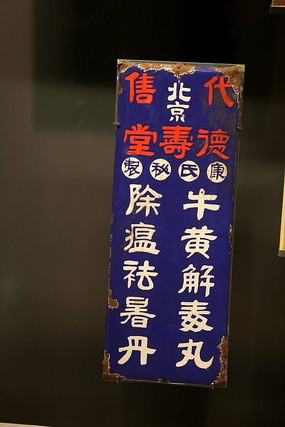 代售
北京
德壽堂
康氏秘製
牛黄解毒丸
除瘟祛暑丹